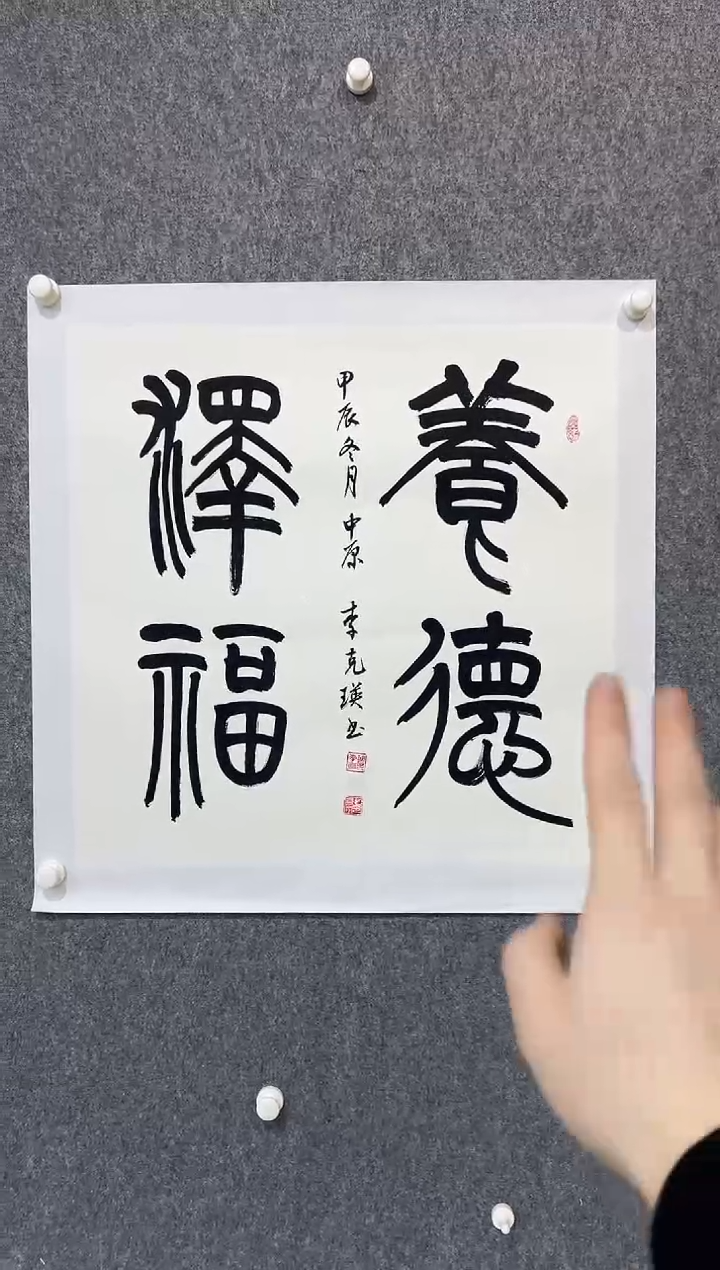 養德
甲辰冬月中原 李克瑛书
澤福